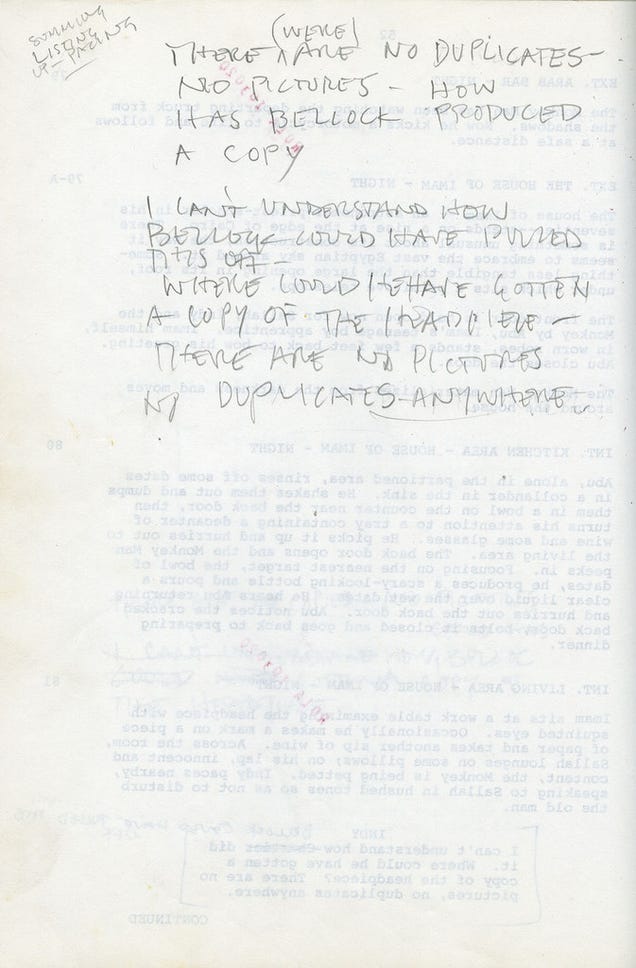 SUMMING
LISTING
UP - PACING
(WERE)
THERE ARE NO DUPLICATES -
NO PICTURES - HOW
HAS BELLOCK PRODUCED
A COPY
I CAN'T UNDERSTAND HOW
BELLOCK COULD HAVE PULLED
THIS OFF -
WHERE COULD HE HAVE GOTTEN
A COPY OF THE HEADPIECE -
THERE ARE NO PICTURES
NO DUPLICATES ANYWHERE
52
EXT. ARAB BAR - NIGHT 79
watching the departing truck from
the shadows. Now he kicks a to follows
at a safe distance.
EXT. THE HOUSE OF IMAM - NIGHT 79-A
The house of in his
at the edge of
is unusual
seems to embrace the vast Egyptian sky
large opening in its roof,
the
Monkey by Abu, teenage apprentice. Imam himself,
in worn robes, stands a few feet back to bow his greeting.
Abu closes the
The and moves
around the house.
INT. KITCHEN AREA - HOUSE OF IMAM - NIGHT 80
Abu, alone in the partioned area, rinses off some dates
in a collander in the sink. He shakes them out and dumps
them in a bowl on the counter near the back door, then
turns his attention to a tray containing a decanter of
wine and some glasses. He picks it up and hurries out to
the living area. The back door opens and the Monkey Man
peeks in. Focusing on the nearest target, the bowl of
dates, he produces a scary-looking bottle and pours a
clear liquid over the wet dates. He hears Abu returning
and hurries out the back door. Abu notices the cracked
back door, bolts it closed and goes back to preparing
dinner.
INT. LIVING AREA - HOUSE OF IMAM - NIGHT 81
Imam sits at a work table examining the headpiece with
squinted eyes. Occasionally he makes a mark on a piece
of paper and takes another sip of wine. Across the room,
Sallah lounges on some pillows; on his lap, innocent and
content, the Monkey is being petted. Indy paces nearby,
speaking to Sallah in hushed tones so as not to disturb
the old man.
INDY
I can't understand how did
it. Where could he have gotten a
copy of the headpiece? There are no
pictures, no duplicates anywhere.
CONTINUED